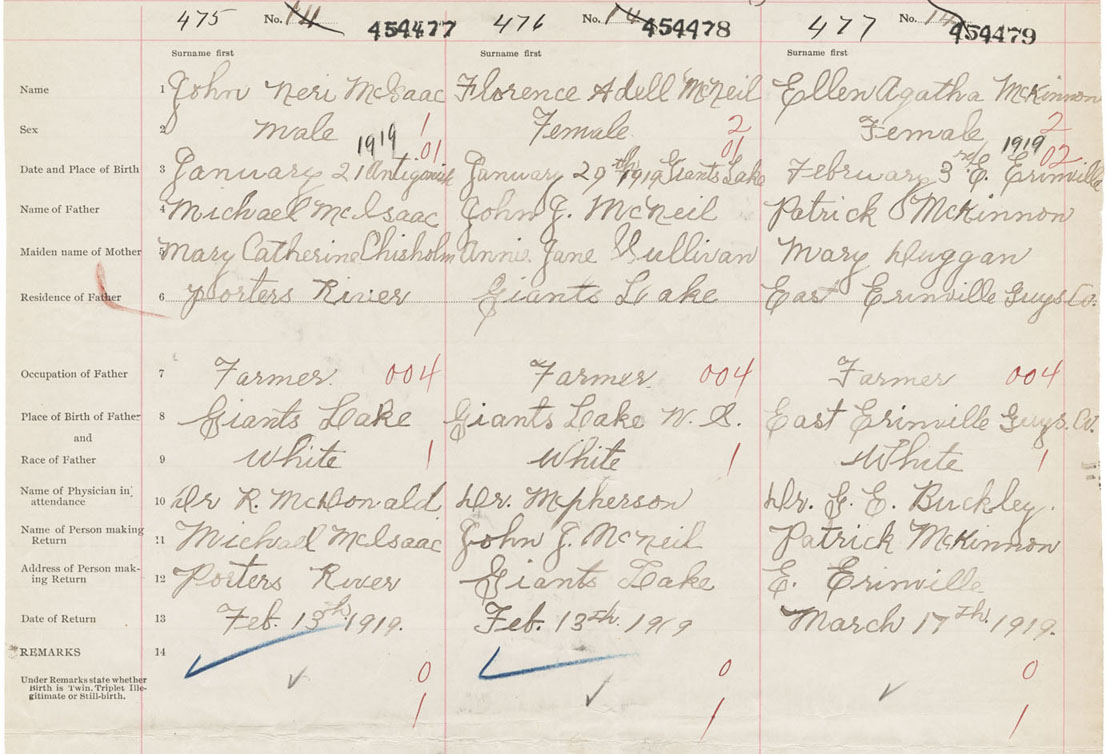 475 No. 14 454477 476 No. 14 454478 477 No. 14 454479
Surname first Surname first Surname first
Name 1 John Neri McIsaac Florence Adell McNeil Ellen Agatha McKinnon
Sex 2 Male 1 Female 2 Female 2
1919 01 01 1919 02
Date and Place of Birth 3 January 21 Antigonish January 29th 1919 Giants Lake February 3rd E. Erinville
Name of Father 4 Michael McIsaac John J. McNeil Patrick McKinnon
Maiden name of Mother 5 Mary Catherine Chisholm Annie Jane Sullivan Mary Duggan
Residence of Father 6 Porters River Giants Lake East Erinville Guys Co.
Occupation of Father 7 Farmer. 004 Farmer. 004 Farmer 004
Place of Birth of Father 8 Giants Lake Giants Lake N. S. East Erinville Guys. Co.
and
Race of Father 9 White 1 White 1 White 1
Name of Physician in
attendance 10 Dr R. McDonald Dr. Mpherson Dr. G. E. Buckley.
Name of Person making
Return 11 Michael McIsaac John J. McNeil Patrick McKinnon
Address of Person mak-
ing Return 12 Porters River Giants Lake E. Erinville
Date of Return 13 Feb. 13th 1919. Feb. 13th. 1919 March 17th. 1919.
REMARKS 14
Under Remarks state whether 0 0 0
Birth is Twin, Triplet Ille-
gitimate or Still-birth. 1 1 1